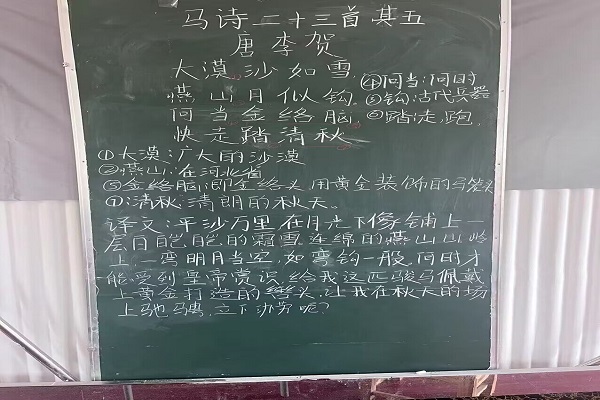 马诗二十三首其五
唐李贺
大漠沙如雪
燕山月似钩
何当金络脑
快走踏清秋
④何当:何时
⑤钩:古代兵器
⑥踏:走,跑
①大漠:广大的沙漠
②燕山:在河北省
③金络脑:即金络头,用黄金装饰的马笼头
①:清秋:清朗的秋天。
译文:平沙万里在月光下像铺上一
层白皑皑的霜雪连绵的燕山山岭
上,一弯明月当空,如弯钩一般,何时才
能受到皇帝赏识,给我这匹骏马佩戴
上黄金打造的辔头,让我在秋天的场
上驰骋,立下功劳呢?